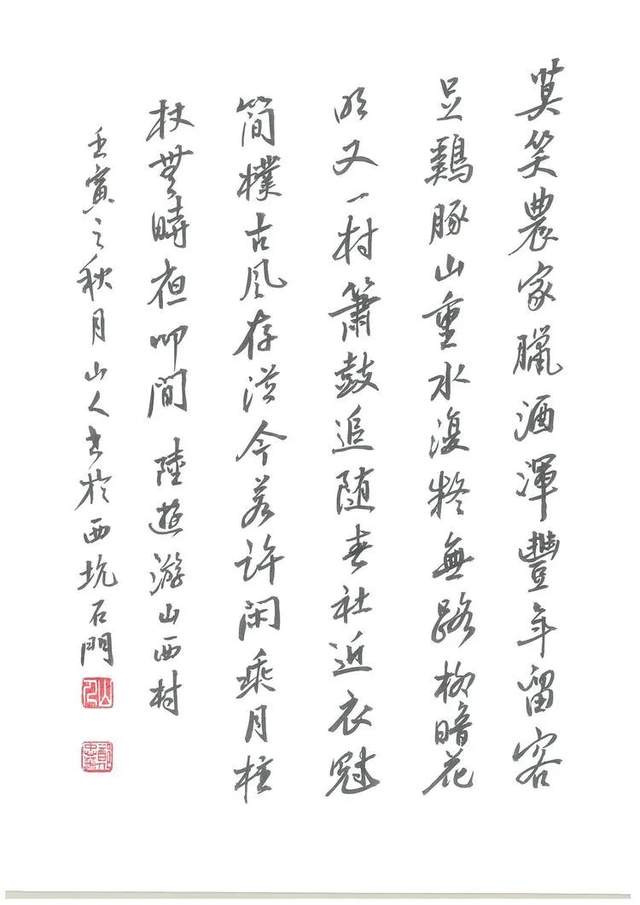 莫笑農家臘酒渾豐年留客
足鷄豚山重水復疑無路柳暗花
明又一村簫鼓追随春社近衣冠
簡樸古風存從今若许闲乘月拄
杖無時夜叩門 陸遊游山西村
壬寅之秋月山人书於西坑石門
山人